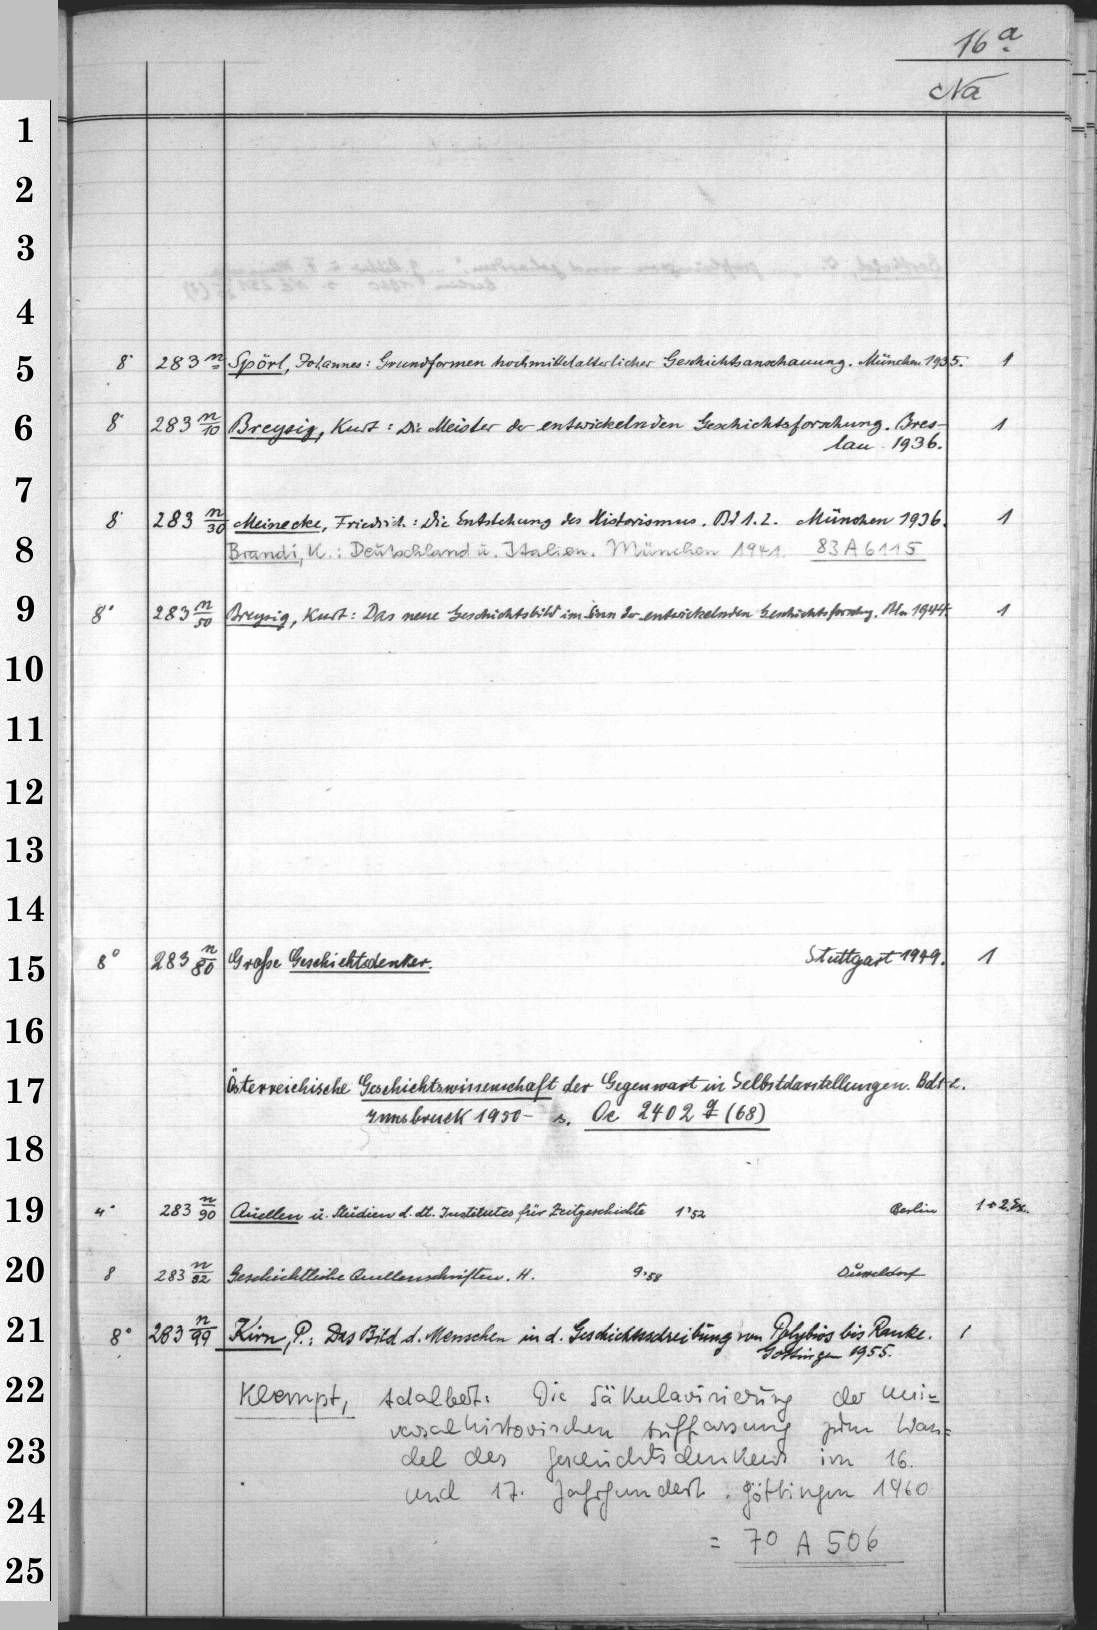 16 a
Na
1
2
3
4
5 8° 283 n Spörl, Johannes: Grundformen hochmittelalterlicher Geschichtsanschauung. München 1935. 1
6 8° 283 n/10 Breysig, Kurt: Die Meister der entwickelnden Geschichtsforschung. Bres-
lau 1936. 1
7
8° 283 n/30 Meinecke, Friedrich: Die Entstehung des Historismus. Bd 1. 2. München 1936. 1
8 Brandi, K.: Deutschland u. Italien. München 1941. 83 A 6115
9 8° 283 n/50 Breysig, Kurt: Das neue Geschichtsbild im Sinn der entwickelnden Geschichtsforschg. Bln 1944. 1
10
11
12
13
14
15 8° 283 n/80 Große Geschichtsdenker. Stuttgart 1949. 1
16
17 Österreichische Geschichtswissenschaft der Gegenwart in Selbstdarstellungen. Bd 1-2.
Innsbruck 1950- s. Oc 2402 g (68)
18
19 4° 283 n/90 Quellen u. Studien d. dt. Institutes für Zeitgeschichte 1'52 Berlin 1+2.Ex.
20 8 283 n/92 Geschichtliche Quellenschriften. H. 9'58 Düsseldorf
21 8° 283 n/99 Kirn, P.: Das Bild d. Menschen in d. Geschichtsschreibung von Polybios bis Ranke. 1
Göttingen 1955.
22 Klempt, Adalbert: Die Säkularisierung der uni=
versalhistorischen Auffassung zum Wan=
23 del des Geschichtsdenkens im 16.
24 und 17. Jahrhundert. Göttingen 1960
= 70 A 506
25